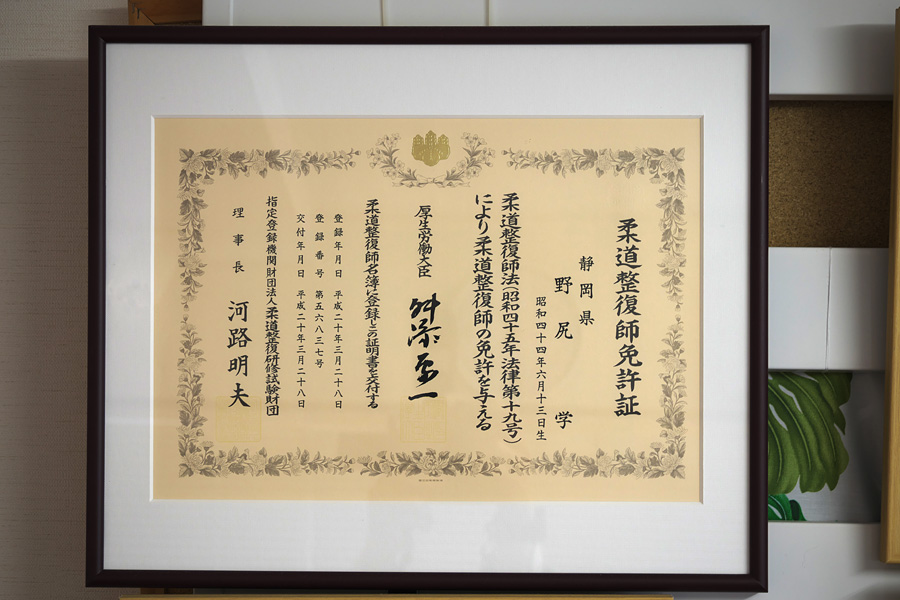 柔道整復師免許証
静岡県
野尻 学
昭和四十四年六月十三日生
柔道整復師法(昭和四十五年法律第十九号)
により柔道整復師の免許を与える
厚生労働大臣 舛添要一
柔道整復師名簿に登録しこの証明書を交付する
登録年月日 平成二十年三月二十八日
登録番号 第五六八三七号
交付年月日 平成二十年三月二十八日
指定登録機関財団法人柔道整復研修試験財団
理事長 河路明夫